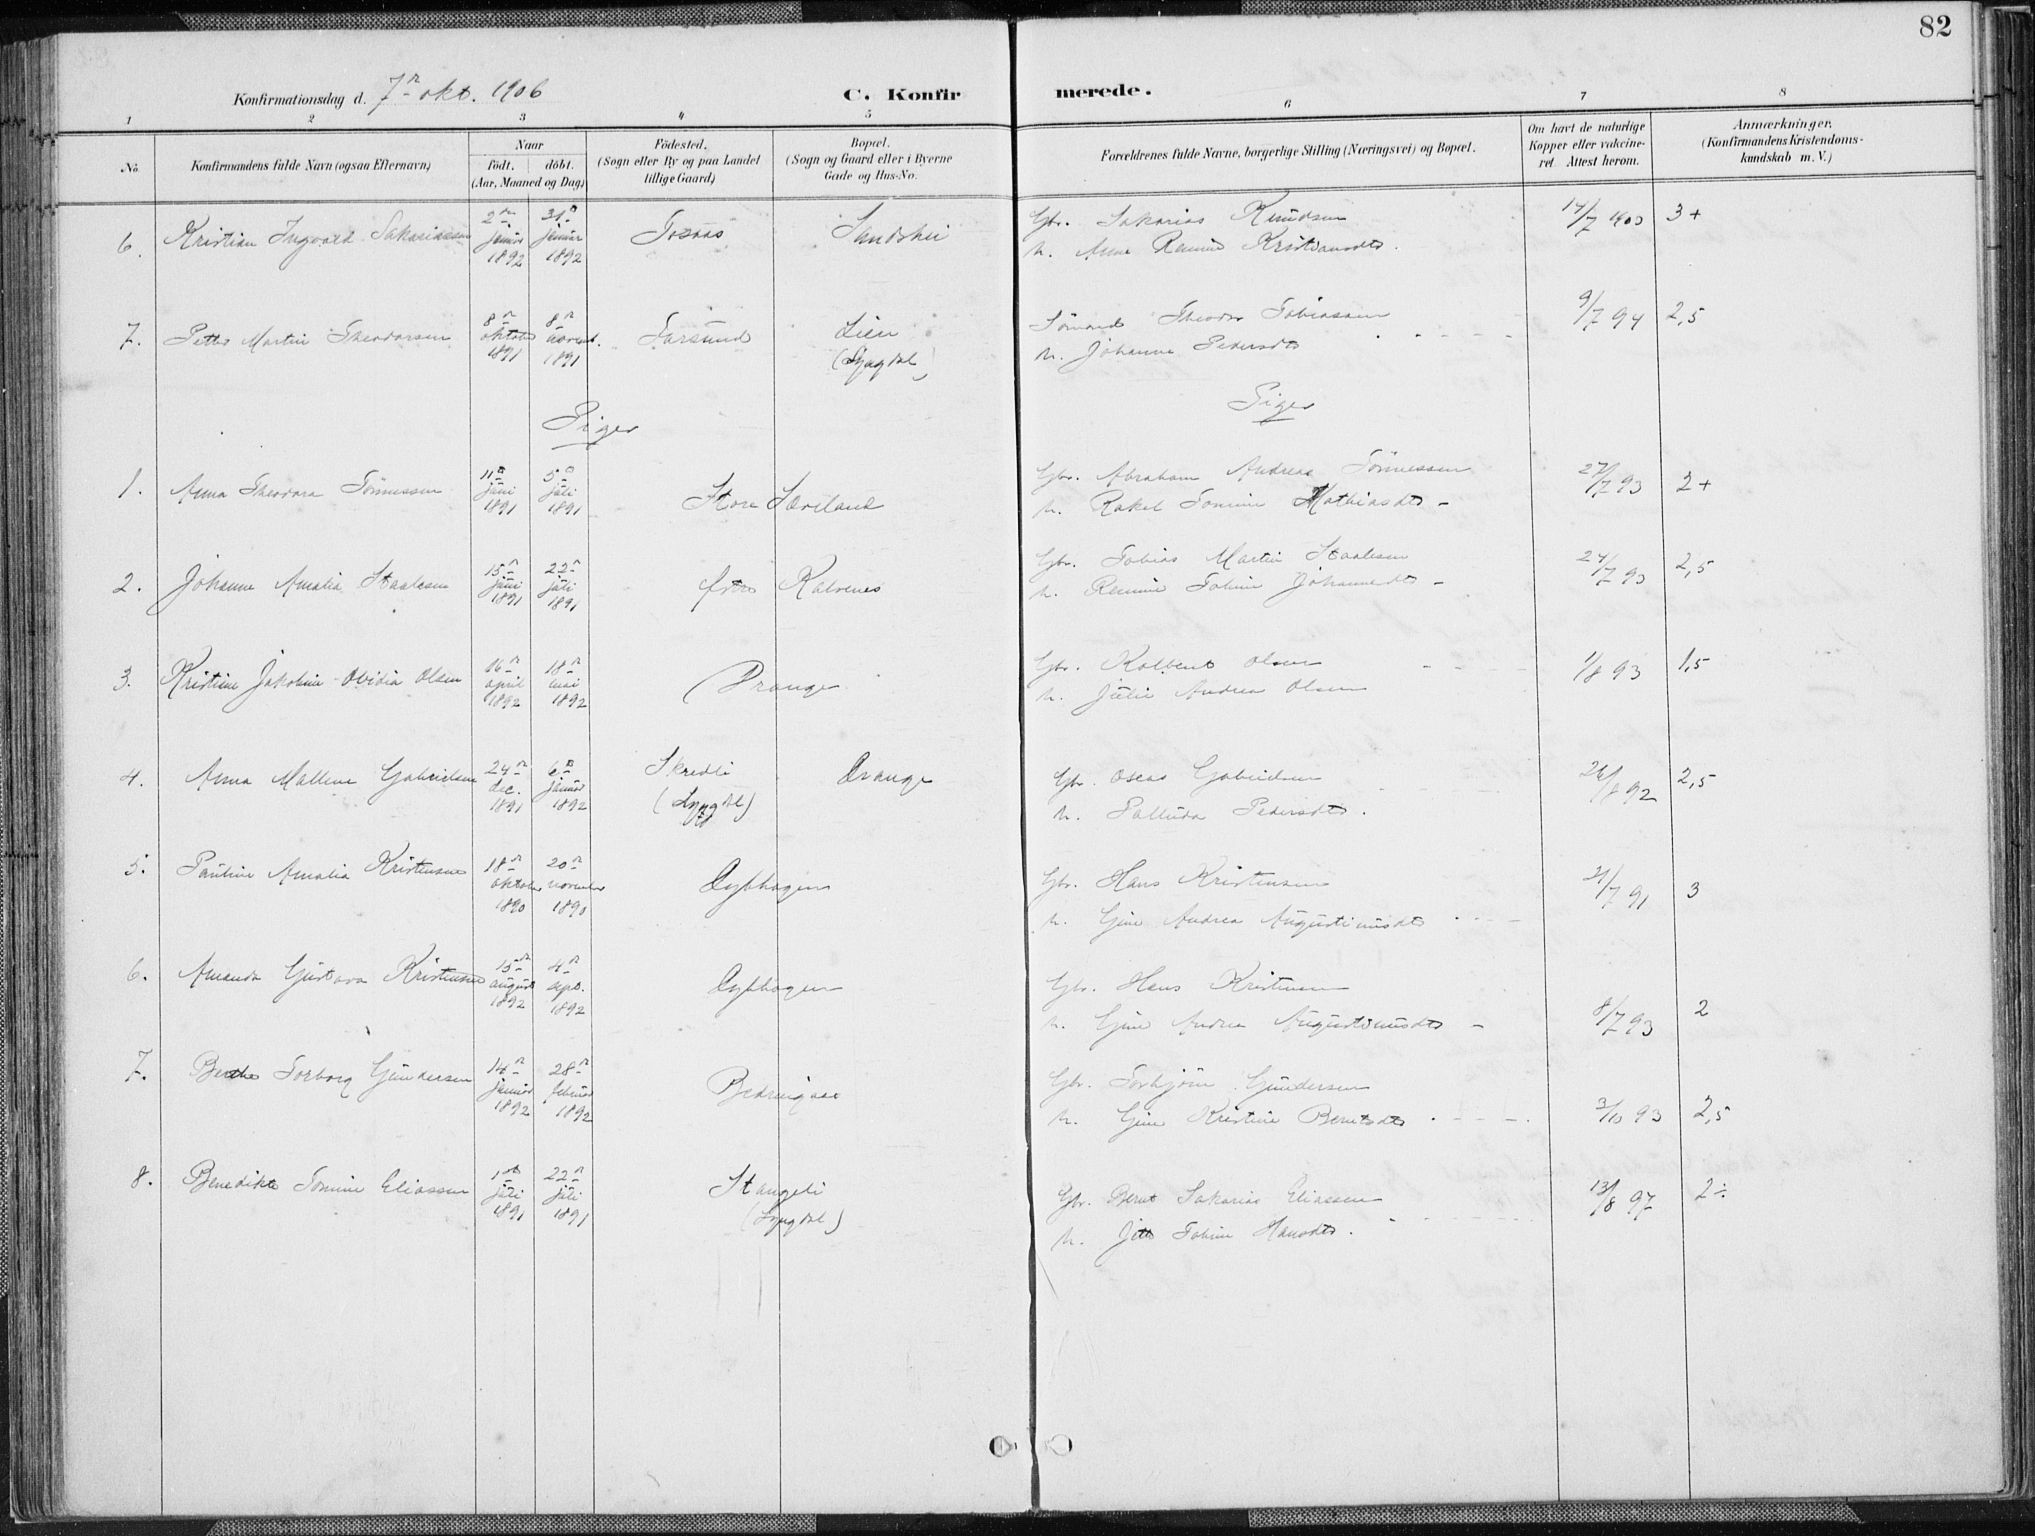 82
Konfirmationsdag d. 7de okt. 1906
C. Konfirmerede.
1 2 3 4 5 6 7 8
No. Konfirmandens fulde Navn (ogsaa Efternavn)
Naar födt. döbt. (Aar, Maaned og Dag)
Födested. (Sogn eller By og paa Landet tillige Gaard)
Bopæl. (Sogn og Gaard eller i Byerne Gade og Hus-No.
Forældrenes fulde Navne, borgerlige Stilling (Næringsvei) og Bopæl.
Om havt de naturlige Kopper eller vakcineret. Attest herom.
Anmærkninger. (Konfirmandens Kristendomskundskab m. V.)
6. Kristian Ingvald Sakariassen 2den januar 1892 31te januar 1892 Sandshei
Gbr. Sakarias Knudsen 17/7 1900 3+
h. Anne Remine Kristiansdtr.
7. Petter Martin Theodorsen 8de oktober 1891 8de novemb. 1891 Farsund Lien (Lyngdal)
Sömand Theodor Tobiassen 9/7 94 2,5
h. Johanne Pedersdtr
Piger
Piger
1. Anna Theodora Tönnessen 11te juni 1891 5te juli 1891 Store Sæviland
Gbr. Abraham Andreas Tönnessen 27/7 93 2+
h. Rakel Tomine Mathiasdtr -
2. Johanne Amalia Staalesen 15de juni 1891 22de juli 1891 Kalvenes
Gbr. Tobias Martin Staalesen 24/7 93 2,5
h. Remine Tobine Johannesdtr -
3. Kristine Jakobine Ovidia Olsen 16de april 1892 18de mai 1892 Drange
Gbr. Kolbent Olsen 1/8 93 1,5
h. Julie Andrea Olsen
4. Anna Mallene Gabrielsen 24de dec. 1891 6te januar 1892 Skredli (Lyngdal) Drange
Gbr. Oseas Gabrielsen 26/8 92 2,5
h. Pedersdtr.
5. Pauline Amalia Kristensen 18de oktober 1890 20de november 1890 Dybhagen
Gbr. Hans Kristensen 21/7 91 3
h. Gine Andrea Augustinusdtr
6. Amanda Gustava Kristensen 15de august 1892 4de sept. 1892 Dybhagen
Gbr. Hans Kristensen
h. Gine Andrea Augustinusdtr - 8/7 93 2
7. Berthe Torborg Gundersen 14de januar 1892 28de februar 1892
Gbr. Torbjörn Gundersen
h. Gine Kristine Berntsdtr 3/10 93 2,5
8. Benedikte Tomine Eliassen 1ste juli 1891 22de juli 1891 Stangeli (Lyngdal)
Gbr. Bernt Sakarias Eliassen 13/8 97 2÷
h. Jette Tobine Hansdtr.